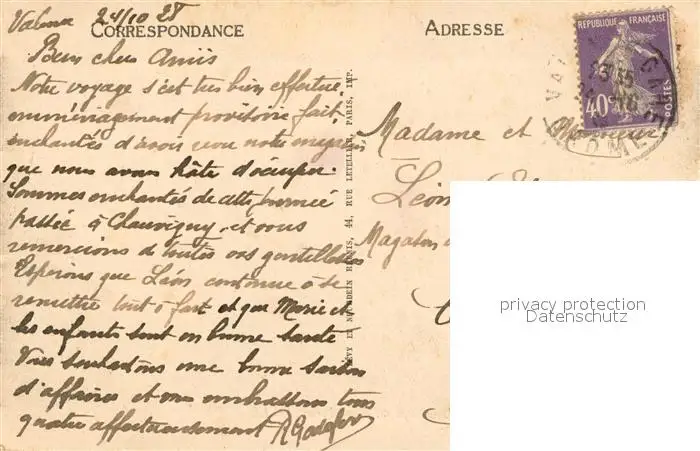 Valmer 24/10 28
CORRESPONDANCE
ADRESSE
Bien chers Amis
Notre voyage s'est très bien effectué
emménagement provisoire fait,
enchantés d'avoir revu notre magasin
que nous avons hâte d'occuper.
Sommes enchantés de cette journée
passée à Chauvigny, et vous
remercions de toutes vos gentillesses
Espérons que Léon continue à se
remettre tout à fait et que Marie et
les enfants sont en bonne santé
Vous souhaitons une bonne saison
d'affaires et vous embrassons tous
quatre affectueusement
LÉVY ET NEURDEIN RÉUNIS, 44, RUE LETELLIER, PARIS, IMP.
RÉPUBLIQUE FRANÇAISE
40c
POSTES
Madame et Monsieur
Léon
Magasin
privacy protection
Datenschutz